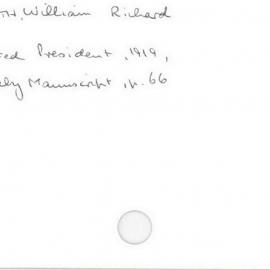 TH, William Richard
ted President, 1919,
ely Manuscript, p. 66